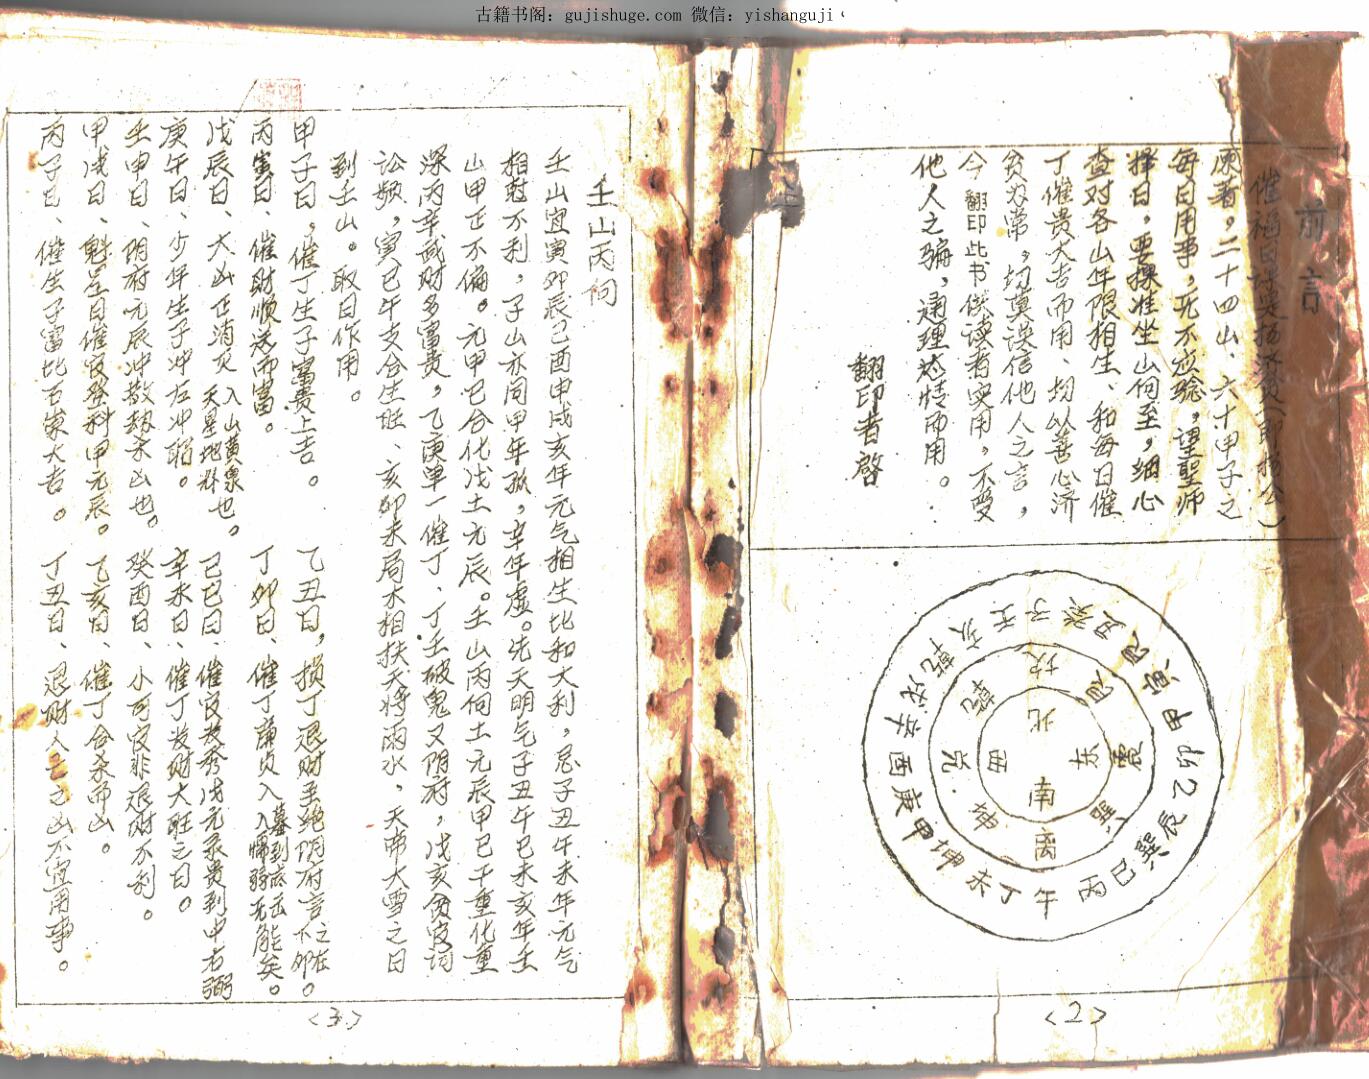 古籍书阁：gujishuge.com 微信：yishanguji
前言
催福日课是杨济贤（即杨公）
原著，二十四山、六十甲子之
每日用事，无不应验，望圣师
择日，要择准坐山向至，细心
查对各山年限相生、和每日催
丁催贵大吉而用、均以善心济
贫为常，切莫误信他人之言，
今翻印此书供读者实用，不受
他人之骗，通理义情而用。
翻印者啓
壬子癸丑艮寅甲卯乙辰巽巳丙午丁未坤申庚酉辛戌乾亥
坎艮震巽离坤兑乾
北东南西
<2>
壬山丙向
壬山宜寅卯辰巳酉申戌亥年元气相生比和大利，忌子丑午未年元气
相克不利，子山亦同甲年孤，辛年虚。先天明气子丑午巳未亥年壬
山甲正不偏。元甲巳合化戊土元辰。壬山丙向土元辰甲巳干重化重
深丙辛武财多富贵，乙庚单一催丁、丁壬破鬼又阴府，戊亥贪废词
讼频，寅巳午支合生旺、亥卯未局木相扶天将雨水，天帝大雪之日
到壬山。取日作用。
甲子日，催丁生子富贵上吉。
乙丑日，损丁退财主绝阴府言之在不卯。
丙寅日、催财顺送而富。
丁卯日、催丁廉贞入墓到底出入归弱无能矣。
戊辰日、大凶正消灭入山黄泉天星地卦也。
己巳日、催官发秀戊元录贵到中右弼
庚午日、少年生子冲右冲胎。
辛未日、催丁发财大旺之日。
壬申日、阴府元辰冲散劫杀凶也。
癸酉日、小可官非退财不利。
甲戌日、魁星日催官登科甲元辰。
乙亥日、催丁合杀而凶。
丙子日、催生子富比石崇大吉。
丁丑日、退财人亡之凶不宜用事。
<3>